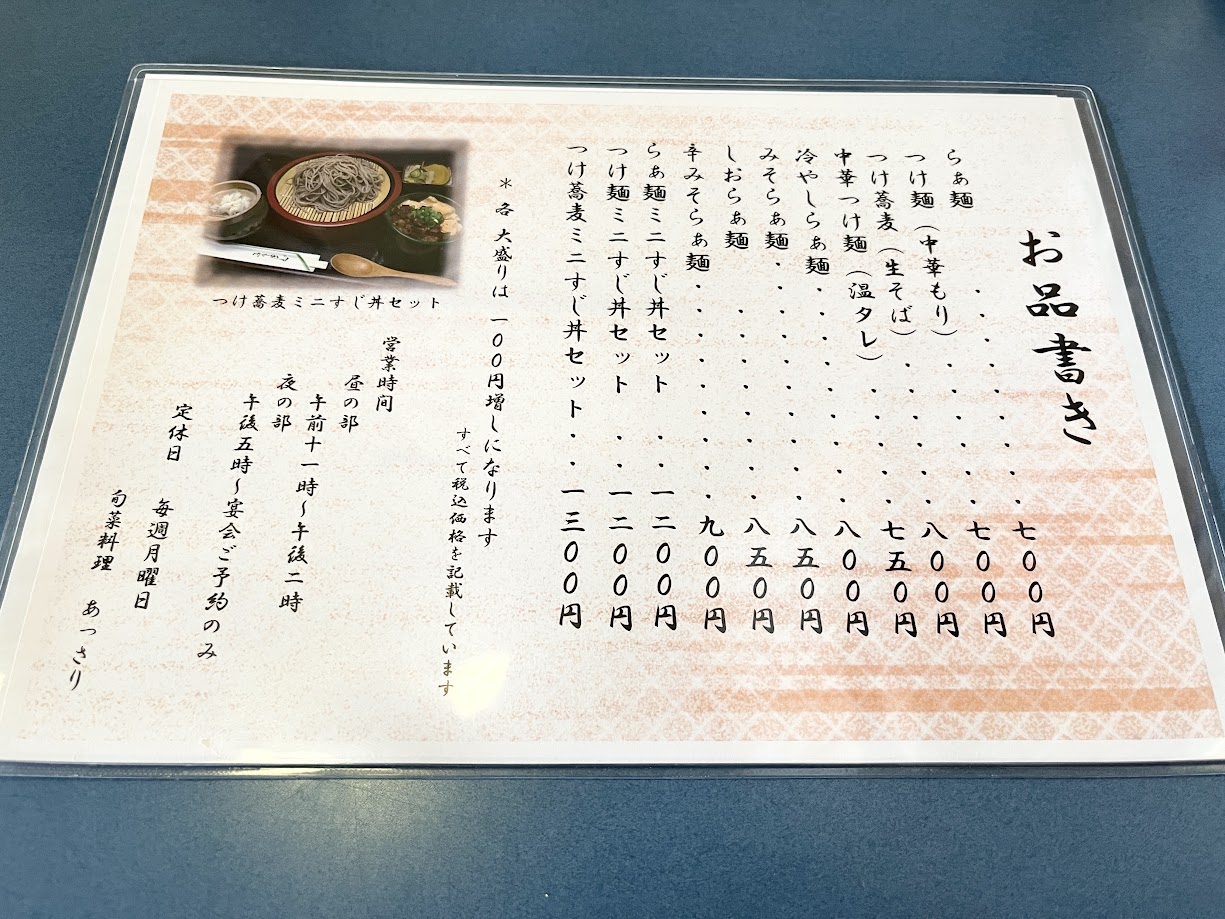 お品書き
らぁ麺・・・・・・・・・七〇〇円
つけ麺（中華もり）・・・・・・七〇〇円
つけ蕎麦（生そば）・・・・・・八〇〇円
中華つけ麺（温タレ）・・・・・七五〇円
冷やしらぁ麺・・・・・・・・・八〇〇円
みそらぁ麺・・・・・・・・・・八五〇円
しおらぁ麺・・・・・・・・八五〇円
辛みそらぁ麺・・・・・・・・・九〇〇円
らぁ麺ミニすじ丼セット・・一二〇〇円
つけ麺ミニすじ丼セット・・一二〇〇円
つけ蕎麦ミニすじ丼セット・・一三〇〇円
＊各 大盛りは 一〇〇円増しになります
すべて税込価格を記載しています
つけ蕎麦ミニすじ丼セット
営業時間
昼の部
午前十一時～午後二時
夜の部
午後五時～宴会ご予約のみ
定休日
毎週月曜日
旬菜料理 あっさり